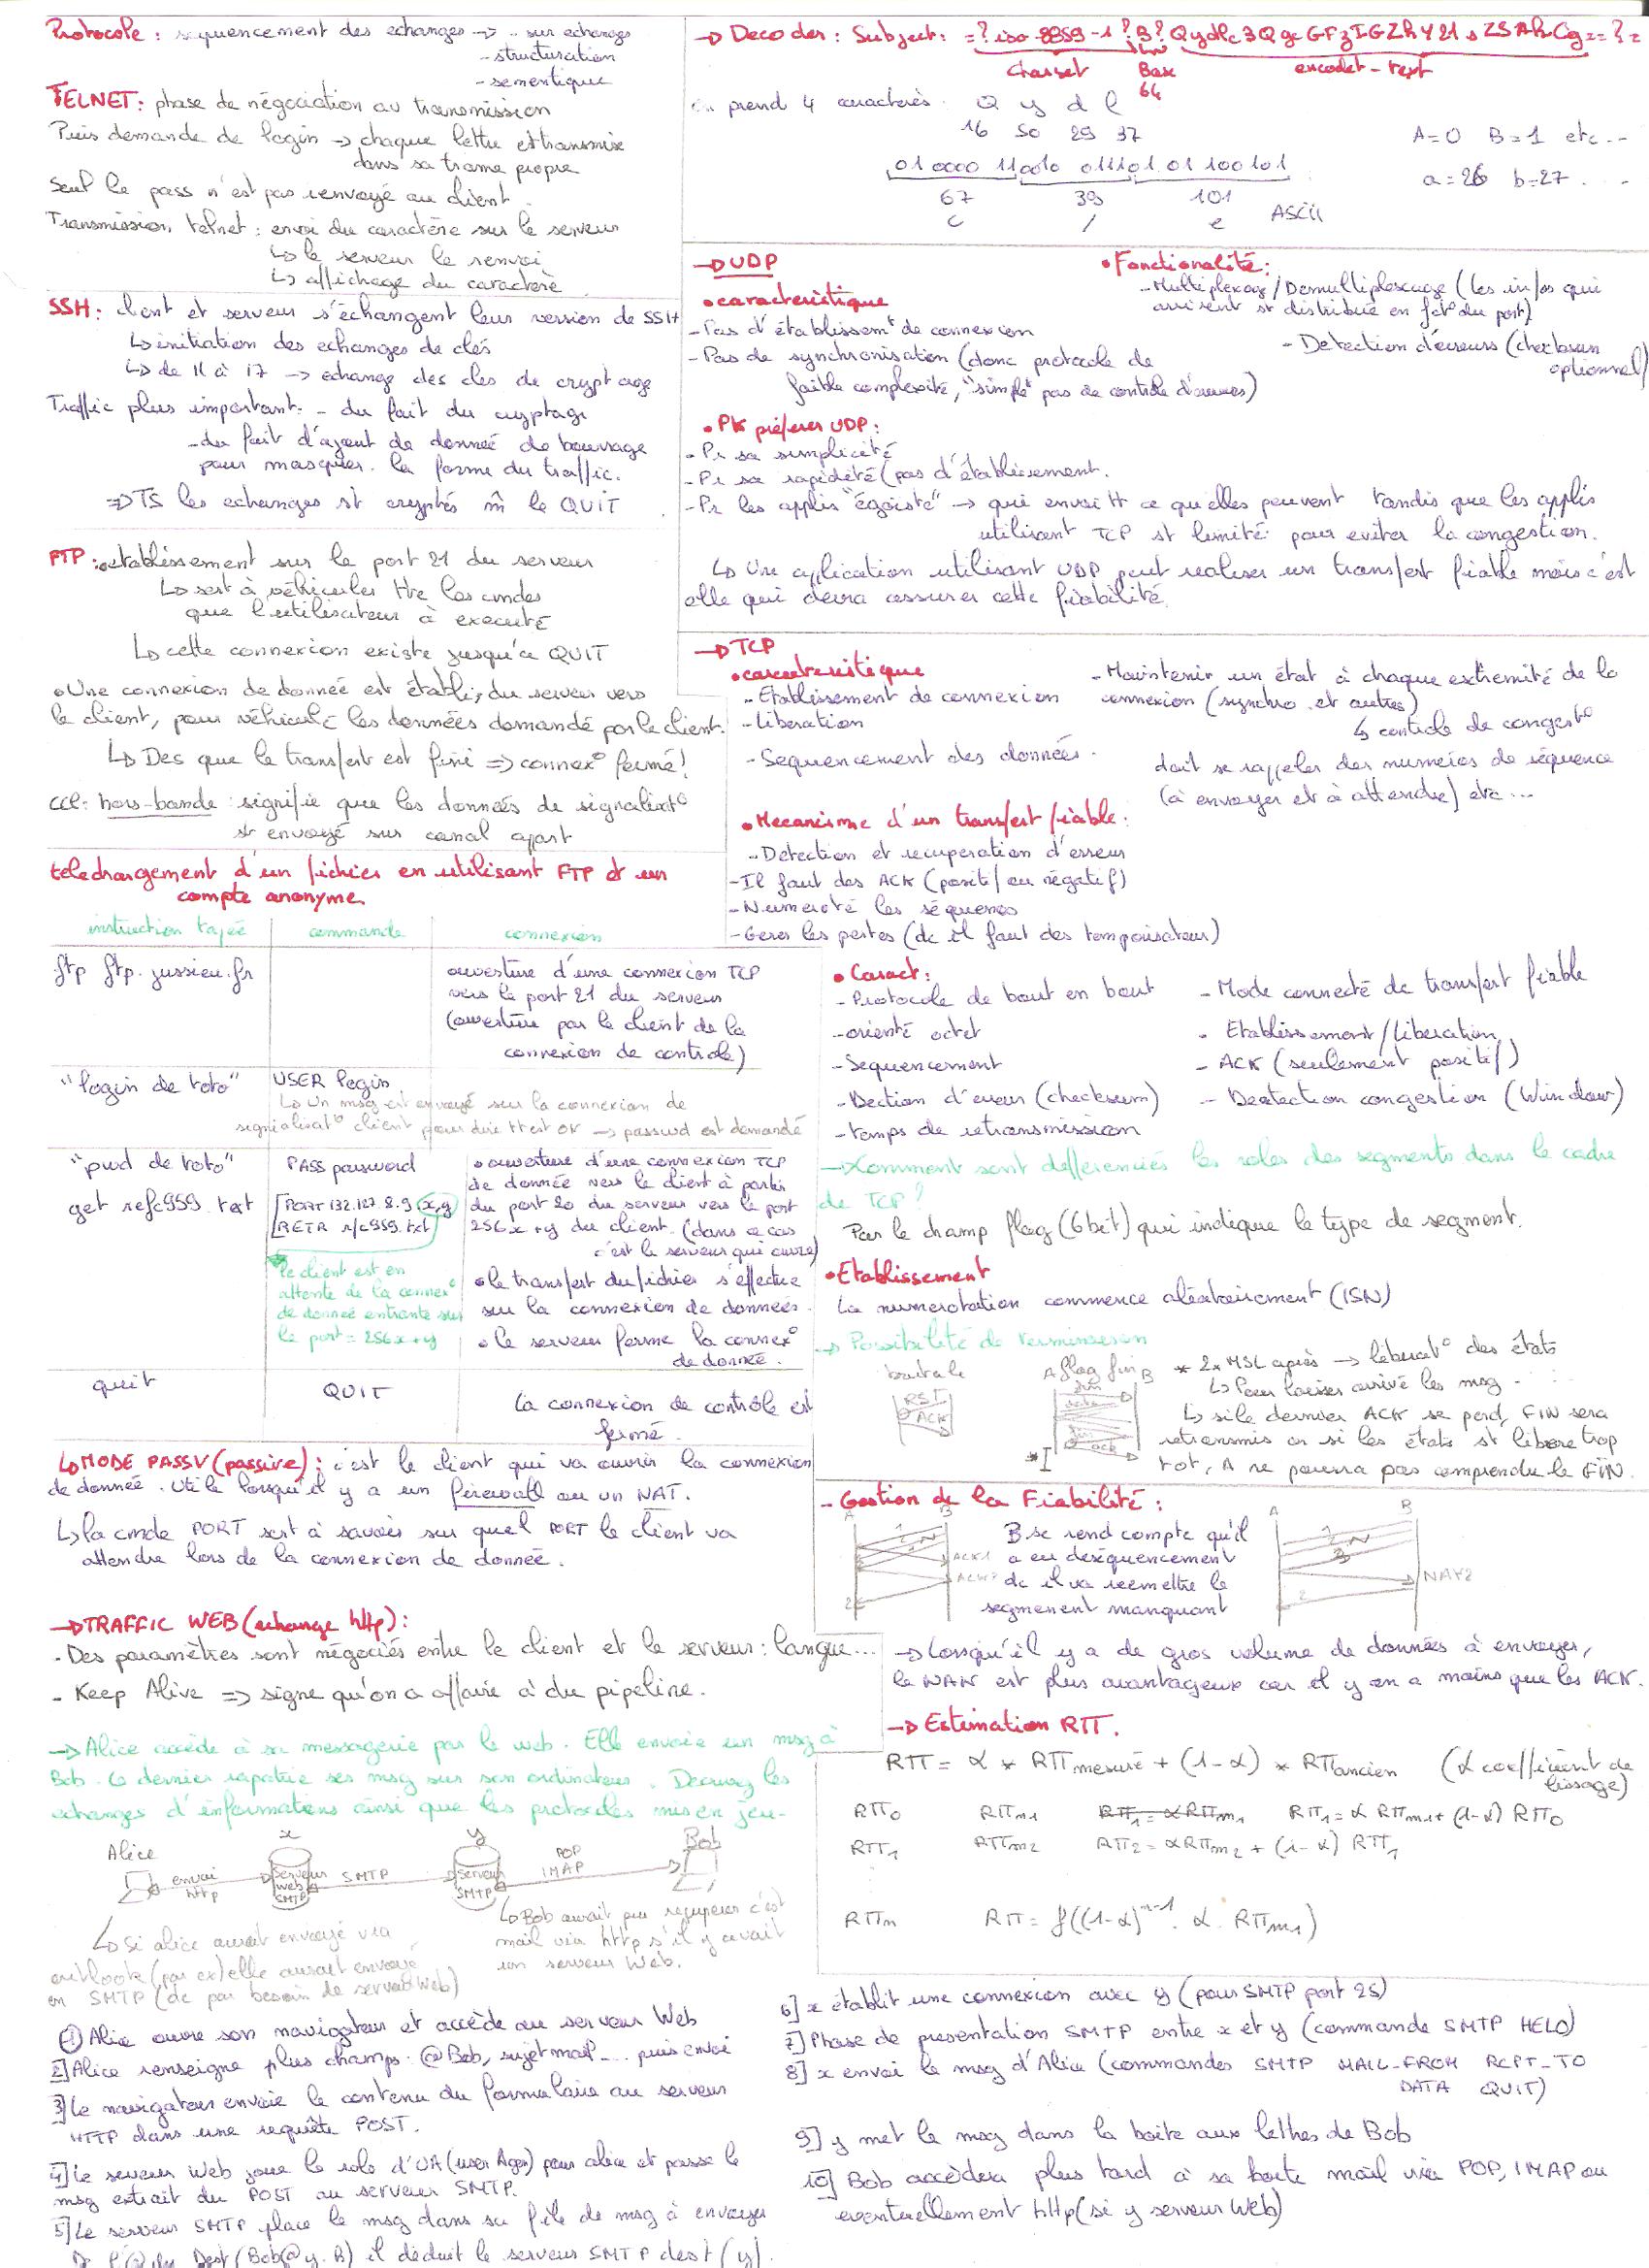 Protocole : sequencement des echanges → .. sur echanges
- structuration
- sementique
TELNET : phase de négociation au transmission
Puis demande de login → chaque lettre est transmise
dans sa trame propre
Seul le pass n'est pas renvoyé au client.
Transmission telnet : envoi du caractère sur le serveur
↳ le serveur le renvoi
↳ affichage du caractère
SSH : client et serveur s'échangent leur version de SSH
↳ initiation des echanges de clés
↳ de 11 à 17 → echange des cles de cryptage
Traffic plus important : - du fait du cryptage
- du fait d'ajout de donneé de bourrage
pour masquer la forme du traffic.
⇒ TS les echanges st cryptés m̂ le QUIT
FTP : • etablissement sur le port 21 du serveur
↳ sert à véhiculer tte les cmdes
que l'utilisateur à executé
↳ cette connexion existe jusqu'à QUIT
• Une connexion de donneé est établi, du serveur vers
le client, pour véhiculé les données demandé par le client.
↳ Des que le transfert est fini ⇒ connex° fermé !
CCL : hors-bande : signifie que les données de signalisat°
st envoyé sur canal apart
telechargement d'un fichier en utilisant FTP et un
compte anonyme.
instruction tapée commande connexion
ftp ftp.jussieu.fr
ouverture d'une connexion TCP
vers le port 21 du serveur
(ouverture par le client de la
connexion de controle)
"login de toto" USER login
↳ Un msg est envoyé sur la connexion de
signialisat° client pour dire tt est OK → passwd est demandé
"pwd de toto" PASS password
get refc959.txt
PORT 132.127.8.9 (x,y)
RETR rfc959.txt
le client est en
attente de la connex°
de donneé entrante sur
le port = 256x+y
• ouverture d'une connexion TCP
de donneé vers le client à partir
du port 20 du serveur vers le port
256x+y du client. (dans ce cas
c'est le serveur qui ouvre)
• le transfert du fichier s'effectue
sur la connexion de données.
• le serveur ferme la connex°
de donneé.
quit QUIT La connexion de contrôle est
fermé.
↳ MODE PASSV (passive) : c'est le client qui va ouvrir la connexion
de donneé. Utile lorsqu'il y a un firewall ou un NAT.
↳ la cmde PORT sert à savoir sur quel PORT le client va
attendre lors de la connexion de donneé.
→ TRAFFIC WEB (echange http) :
- Des paramètres sont négociés entre le client et le serveur : langue...
- Keep Alive ⇒ signe qu'on a affaire à du pipeline.
→ Alice accède à sa messagerie par le web. Elle envoie un msg à
Bob. Ce dernier rapatrie ses msg sur son ordinateur. Decrivez les
echanges d'informations ainsi que les protocoles mis en jeu.
Alice x y Bob
envoi
http
serveur
web
SMTP
SMTP
serveur
SMTP
POP
IMAP
↳ Si alice aurait envoyé via
outlook (par ex) elle aurait envoyé
en SMTP (dc pas besoin de serveur Web)
↳ Bob aurait pu recuperer c'est
mail via http s'il y avait
un serveur Web.
1] Alice ouvre son navigateur et accède au serveur Web
2] Alice renseigne plus champs : @Bob, sujet mail... puis envoi
3] Le navigateur envoie le contenu du formulaire au serveur
HTTP dans une requête POST.
4] Le serveur Web joue le role d'UA (user Agen) pour alice et passe le
msg extrait du POST au serveur SMTP.
5] Le serveur SMTP place le msg dans sa file de msg à envoyer
De l'@ du Dest (Bob@y.B) il deduit le serveur SMTP dest (y).
→ Decoder : Subject : =?iso-8859-1?B?QydlC3QgcGFzIGZhY2lsZSAhCg==?=
Charset Base encodet-text
64
On prend 4 caracterès : Q y d l
16 50 29 37
010000 110010 011101 100101
67 39 101
C / e ASCII
A=0 B=1 etc...
a=26 b=27 ...
→ UDP
• caracteristique
- Pas d'établissemt de connexion
- Pas de synchronisation (donc protocole de
faible complexité, "simple" pas de controle d'erreurs)
• Fonctionalité :
- Multiplexage/Demultiplexage (les infos qui
arrivent st distribué en fct° du port)
- Detection d'erreurs (checksum
optionnel)
• Pk préferer UDP :
- Pr sa simplicité
- Pr sa rapidité (pas d'établissement.
- Pr les applis "égoiste" → qui envoi tt ce qu'elles peuvent tandis que les applis
utilisant TCP st limité pour eviter la congestion.
↳ Une application utilisant UDP peut realiser un transfert fiable mais c'est
elle qui devra assurer cette fiabilité.
→ TCP
• caracteristique
- Etablissement de connexion
- liberation
- Sequencement des données.
- Maintenir un état à chaque extremité de la
connexion (synchro et autres)
↳ controle de congest°
doit se rappeler des numeros de séquence
(à envoyer et à attendre) etc...
• Mecanisme d'un transfert fiable :
- Detection et recuperation d'erreur
- Il faut des ACK (positif ou négatif)
- Numeroté les séquences
- Gerer les pertes (dc il faut des temporisateur)
• Caract :
- Protocole de bout en bout
- orienté octet
- Sequencement
- Dection d'erreur (checksum)
- temps de retransmission
- Mode connecté de transfert fiable
- Etablissement/liberation
- ACK (seulement positif)
- Deatection congestion (Window)
→ Comment sont differenciés les roles des segments dans le cadre
de TCP ?
Par le champ flag (6 bit) qui indique le type de segment.
• Etablissement
La numerotation commence aléatoirement (ISN)
→ Possibilité de terminaison
brutale
RST
ACK
A flag fin B
fin
data
fin
ack
* 2 x MSL après → liberat° des états
↳ Pour laisser arrivé les msg
↳ si le dernier ACK se perd, FIN sera
retransmis or si les états st libere trop
tot, A ne pourra pas comprendre le FIN.
- Gestion de la Fiabilité :
A B
1
2
ACK1
ACK?
2
B se rend compte qu'il
a eu deséquencement
dc il va reemettre le
segmenent manquant
A B
1
2
3
NAK2
2
→ Lorsqu'il y a de gros volume de données à envoyer,
le NAK est plus avantageux car il y en a moins que les ACK.
→ Estimation RTT.
RTT = α * RTTmesuré + (1-α) * RTTancien (α coefficient de
lissage)
RTT0 RTTm1 RTT1 = αRTTm1 RTT1 = α RTTm1 + (1-α) RTT0
RTT1 RTTm2 RTT2 = αRTTm2 + (1-α) RTT1
RTTn RTT = f((1-α)^n-1 . α . RTTm1)
6] x établit une connexion avec y (pour SMTP port 25)
7] Phase de presentation SMTP entre x et y (commande SMTP HELO)
8] x envoi le msg d'Alice (commandes SMTP MAIL-FROM RCPT-TO
DATA QUIT)
9] y met le msg dans la boite aux lettres de Bob
10] Bob accèdera plus tard à sa boite mail via POP, IMAP ou
eventuellement http (si y serveur Web)